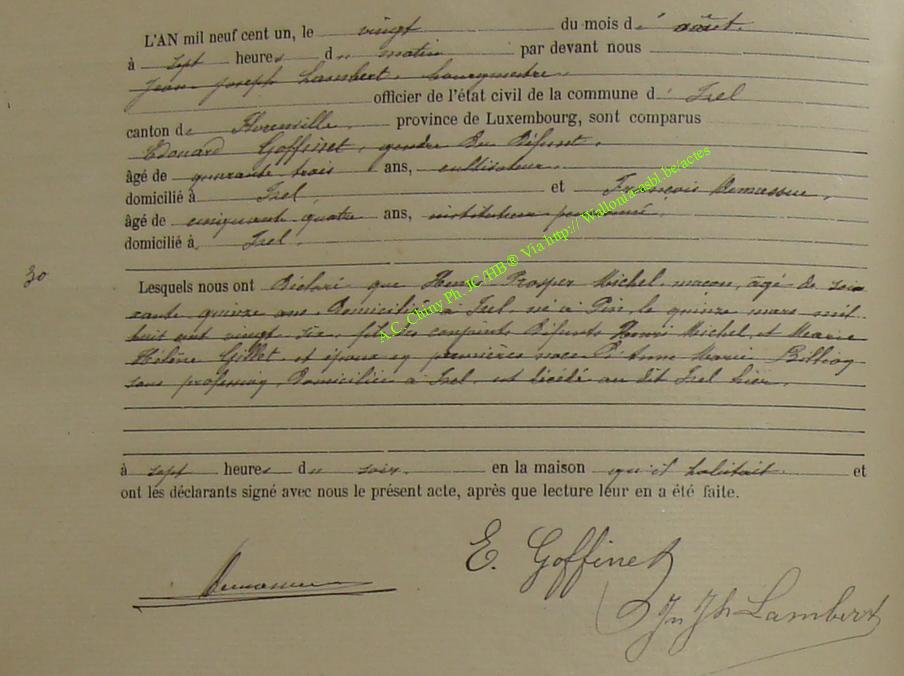 L'AN mil neuf cent un, le vingt du mois d' août.
à sept heures du matin par devant nous
Jean Joseph Lambert, bourgmestre,
officier de l'état civil de la commune d' Izel
canton de Florenville, province de Luxembourg, sont comparus
Edouard Goffinet, gendre du défunt,
âgé de quarante trois ans, cultivateur,
domicilié à Izel, et François Demasure,
âgé de cinquante quatre ans, instituteur pensionné,
domicilié à Izel.
30
Lesquels nous ont déclaré que Henri Prosper Michel, maçon, âgé de soi
xante quinze ans, domicilié à Izel, né à Pin, le quinze mars mil
huit cent vingt six, fils des conjoints défunts Henri Michel, et Marie
Hélène Gillet, et époux en premières noces d'Anne Marie Billiog
sans profession, domiciliée à Izel, est décédé au dit Izel hier,
à sept heures du soir, en la maison qu'il habitait et
ont les déclarants signé avec nous le présent acte, après que lecture leur en a été faite.
E. Goffinet
Jn Jh Lambert
A.C. Chiny Ph. JC/HB® Via http:// Wallonia-asbl.be/actes